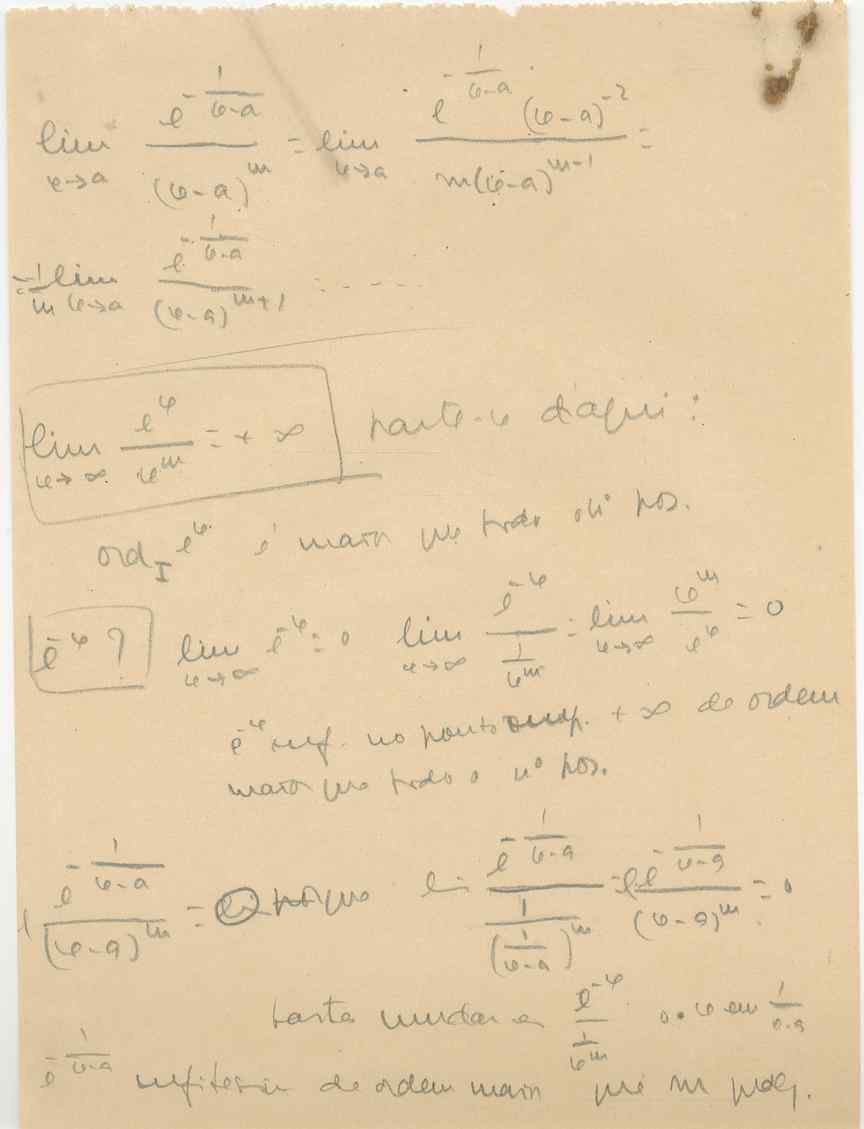 lim_{x→a} e^{-1/(x-a)} / (x-a)^m = lim_{x→a} e^{-1/(x-a)} (x-a)^{-2} / m(x-a)^{m-1} =
= 1/m lim_{x→a} e^{-1/(x-a)} / (x-a)^{m+1} = .....
lim_{x→∞} e^x / x^m = + ∞ parte-se d'aqui:
ord_I e^x é maior que todo o nº pos.
e^{-x} ? lim_{x→∞} e^{-x} = 0 lim_{x→∞} e^{-x} / (1/x^m) = lim_{x→∞} x^m / e^x = 0
e^{-x} inf. no ponto + ∞ de ordem
maior que todo o nº pos.
e^{-1/(x-a)} / (x-a)^m = porque e^{-1/(x-a)} / (1/(1/(x-a))^m) = e^{-1/(x-a)} / (x-a)^m = 0
basta mudar e^{-x} / (1/x^m) o x em 1/(x-a)
e^{-1/(x-a)} de ordem maior que m